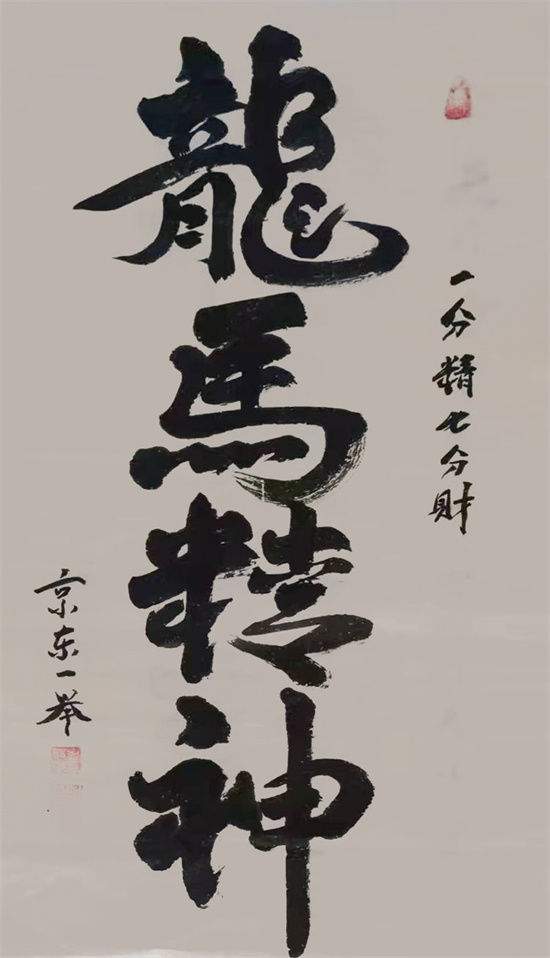 一分精七分财
龍馬精神
京东一举